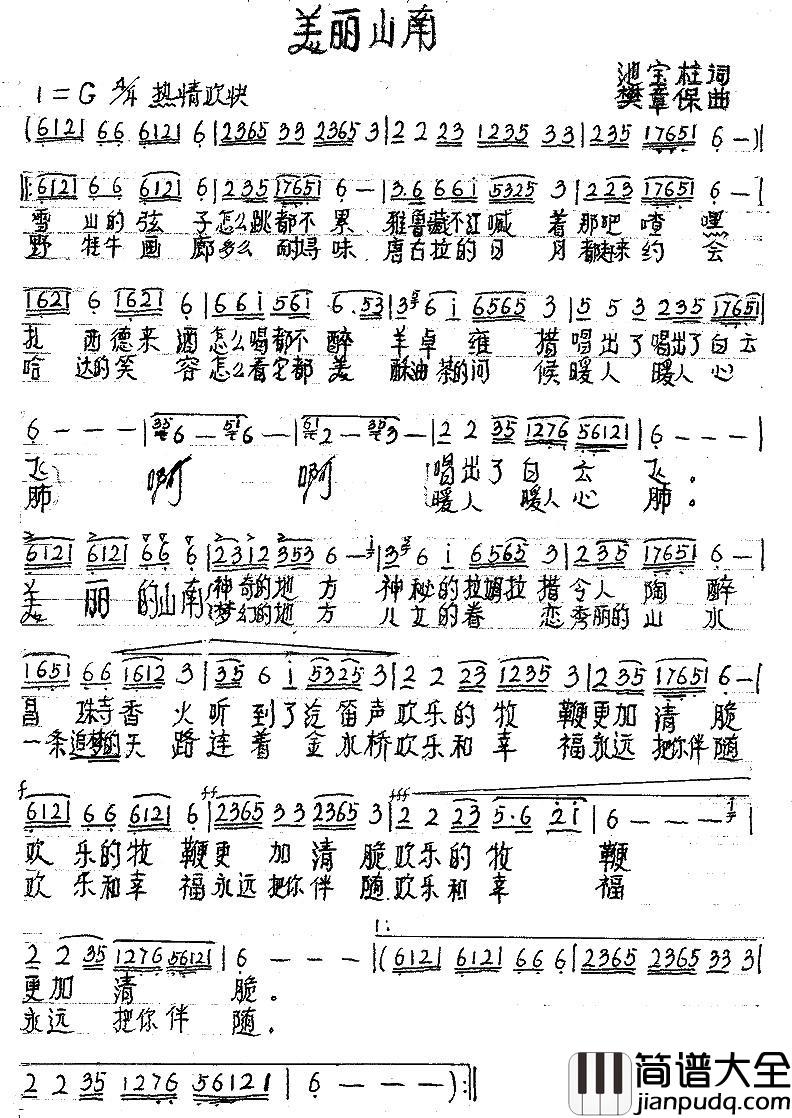 美丽山南
池宝柱词
1=G 4/4 热情欢快
樊章保曲
(6121 66 6121 6|2365 33 2365 3|2 2 23 1235 33|235 17651 6 —)|
|:6121 6 6 6121 6|235 17651 6 —|3·6 661 5325 3|2 23 17651 6 —|
雪山的弦子怎么跳都不累 雅鲁藏不江喊着那吧喳嘿
野牦牛画廊多么耐寻味 唐古拉的日月都赶来约会
1621 6 1621 6|661 561 6·53|3 6 1 6565 3|5 5 3 235 17651|
扎西德来酒怎么喝都不醉 羊卓雍措唱出了唱出了白云
哈达的笑容怎么看它都美 酥油茶的问候暖人暖人心
6 — — —|6 — 6 —|2 — 3 —|2 2 35 1276 56121|6 — — —|
飞 啊 啊 唱出了白云飞。
肺 暖人暖人心肺。
6121 6121 66 6|2312 353 6 —|3 6 1 6565 3|235 17651 6 —|
美丽的山南神奇的地方 神秘的拉姆拉措令人陶醉
梦幻的地方 儿女的眷恋秀丽的山水
1651 66 1612 3|35 6 1 5325 3|2 2 23 1235 3|235 17651 6 —|
昌珠寺香火听到了 笛声欢乐的牧鞭更加清脆
一条追梦的天路连着金水桥欢乐和幸福永远把你伴随
f ff fff
6121 66 6121 6|2365 3 3 2365 3|2 2 23 5·6 21|6 — — |
欢乐的牧鞭更加清脆欢乐的牧鞭
欢乐和幸福永远把你伴随欢乐和幸福
1:
2 2 35 1276 56121|6 — — —|(6121 6121 66 6|2365 2365 33 3|
更加清脆。
永远把你伴随。
2 2 35 1276 56121|6 — — —):|
简谱大全
jianpudq.com